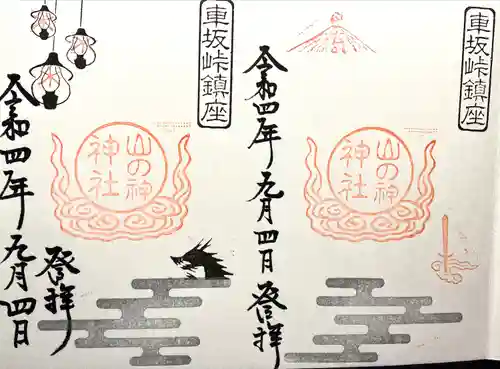 車坂峠鎮座
山の神
神社
令和四年九月四日
登拝
車坂峠鎮座
山の神
神社
令和四年九月四日
登拝